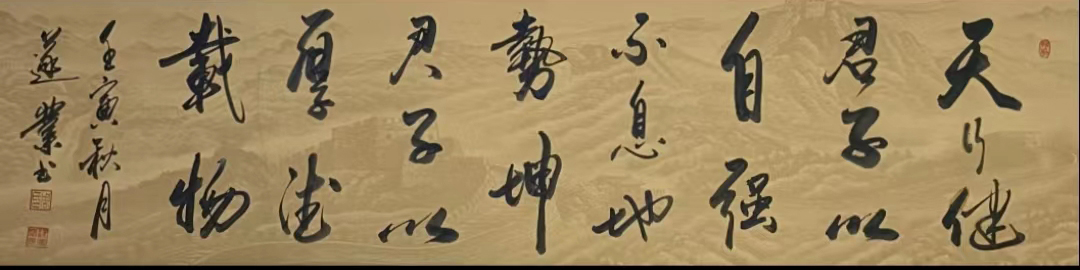 天行健
君子以
自强
不息地
勢坤
君子以
厚德
載物
壬寅秋月
蓮業书